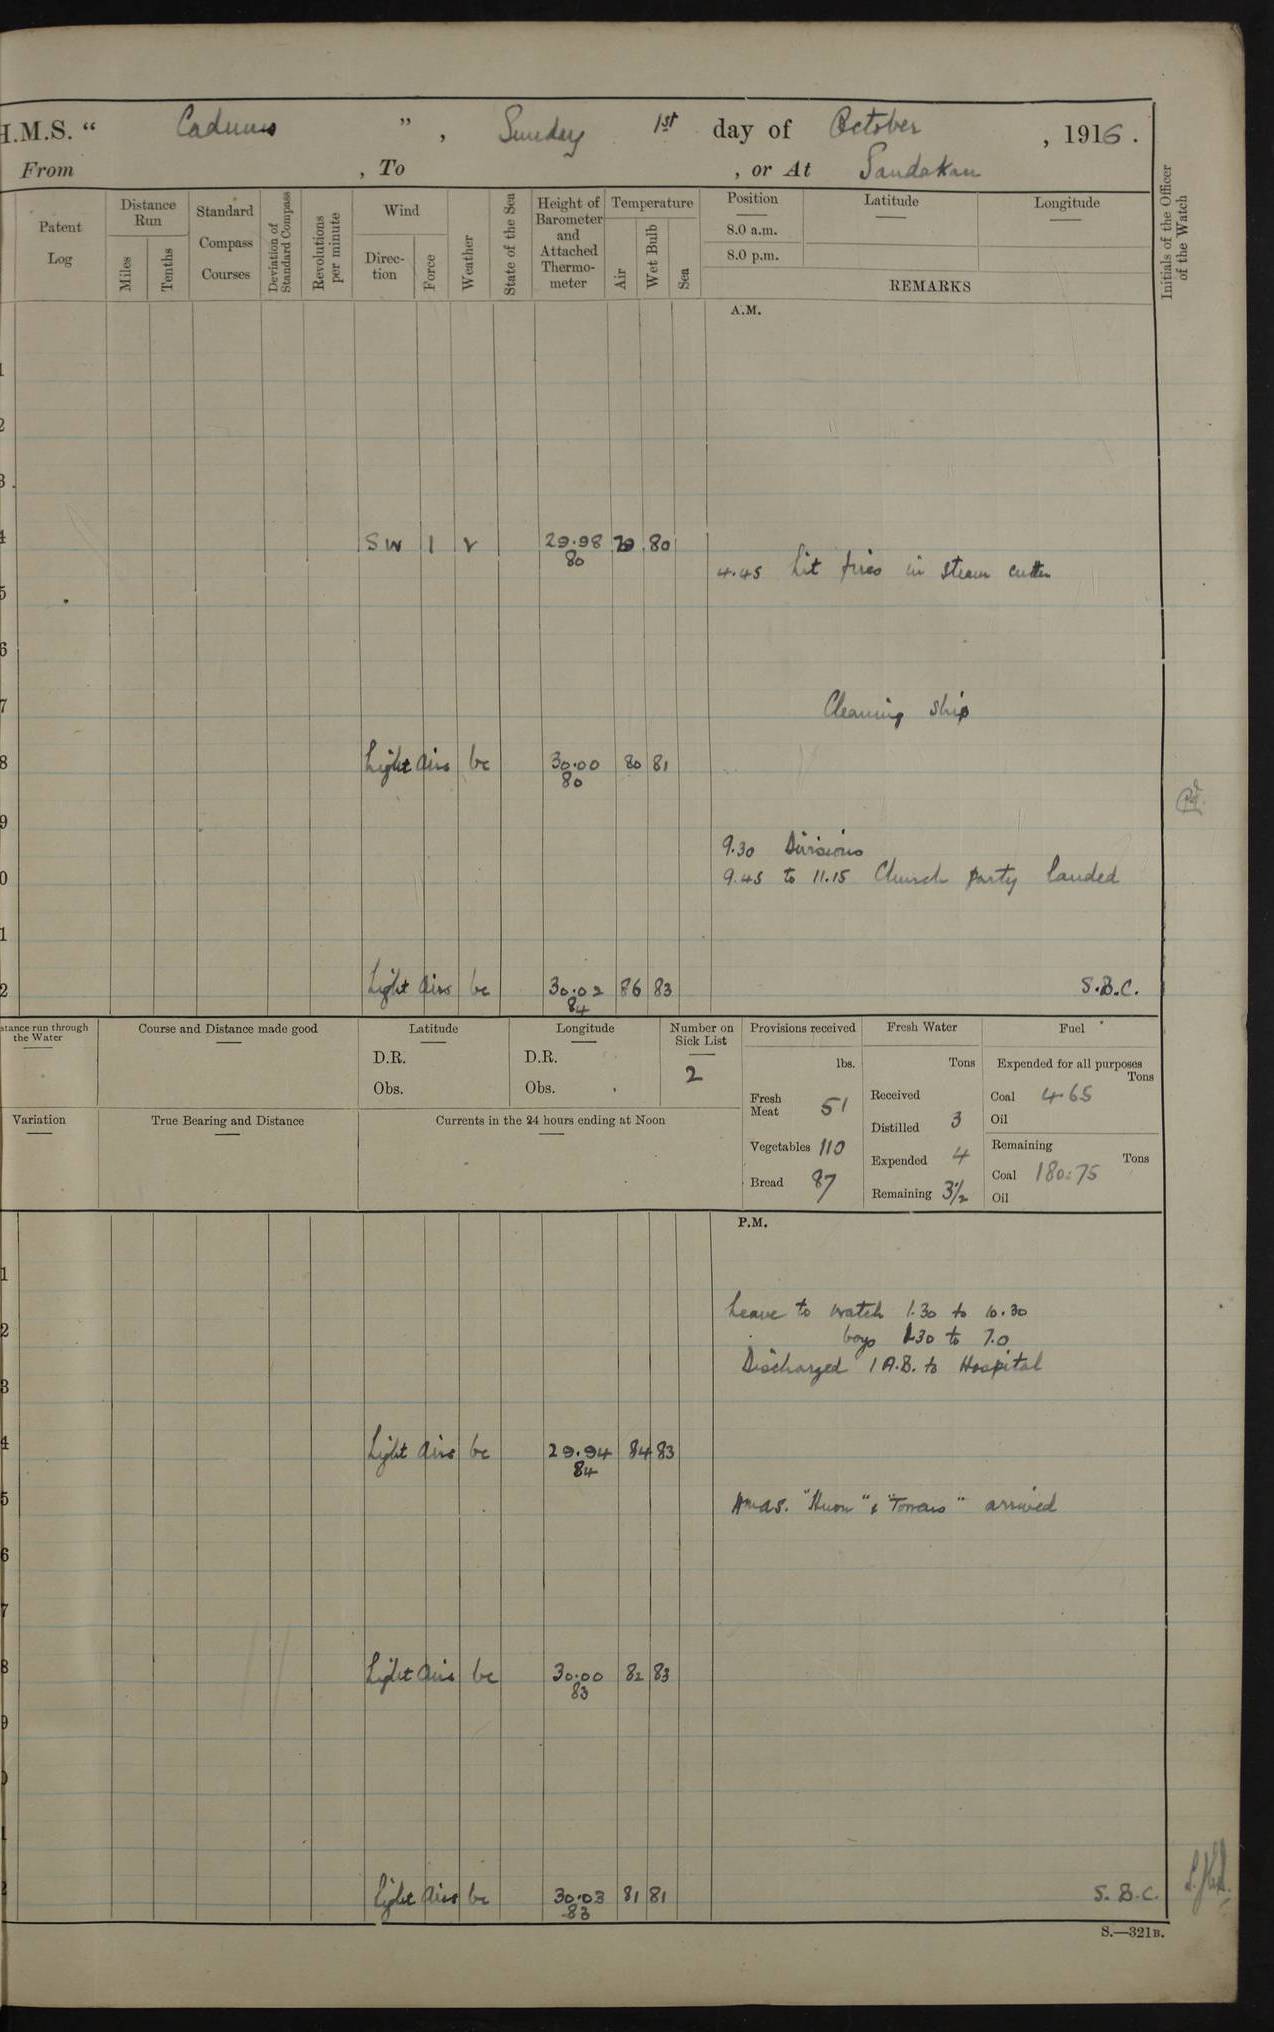 H.M.S. “ Cadmus ” , Sunday 1st day of October , 1916 .
From , To , or At Sandakan
Patent Log
Distance Run
Miles
Tenths
Standard Compass Courses
Deviation of Standard Compass
Revolutions per minute
Wind
Direc-tion
Force
Weather
State of the Sea
Height of Barometer and Attached Thermo-meter
Temperature
Air
Wet Bulb
Sea
Position
8.0 a.m.
8.0 p.m.
Latitude
Longitude
REMARKS
Initials of the Officer of the Watch
A.M.
1
2
3
4 SW 1 r 29.98 79 80
80
4.45 Lit fires in steam cutter
5
6
7 Cleaning ship
8 Light airs bc 30.00 80 81
80
9
9.30 Divisions
0 9.45 to 11.15 Church party landed
1
2 Light airs bc 30.02 86 83 S.B.C.
84
stance run through the Water
Course and Distance made good
Latitude
D.R.
Obs.
Longitude
D.R.
Obs.
Number on Sick List
2
Provisions received
lbs.
Fresh Meat 51
Vegetables 110
Bread 87
Fresh Water
Tons
Received
Distilled 3
Expended 4
Remaining 3½
Fuel
Expended for all purposes
Tons
Coal 4.65
Oil
Remaining
Tons
Coal 180.75
Oil
Variation
True Bearing and Distance
Currents in the 24 hours ending at Noon
P.M.
1
Leave to watch 1.30 to 10.30
2 boys 1.30 to 7.0
Discharged 1 A.B. to Hospital
3
4 Light airs bc 29.94 84 83
84
5 HMAS. "Huon" & "Torrens" arrived
6
7
8 Light airs bc 30.00 82 83
83
9
0
1
2 Light airs bc 30.03 81 81 S.B.C.
83
S.—321B.